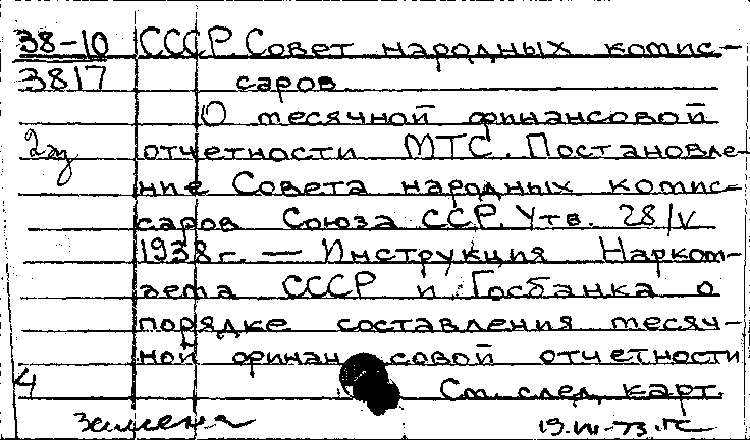 38-10 СССР. Совет народных комис-
3817 саров
О месячной финансовой
2 эк отчетности МТС. Постановле-
ние Совета народных комис-
саров Союза ССР. Утв. 28/V
1938г. — Инструкция Нарком-
зема СССР и Госбанка о
порядке составления месяч-
ной финансовой отчетности
4 См. след. карт.
Замена